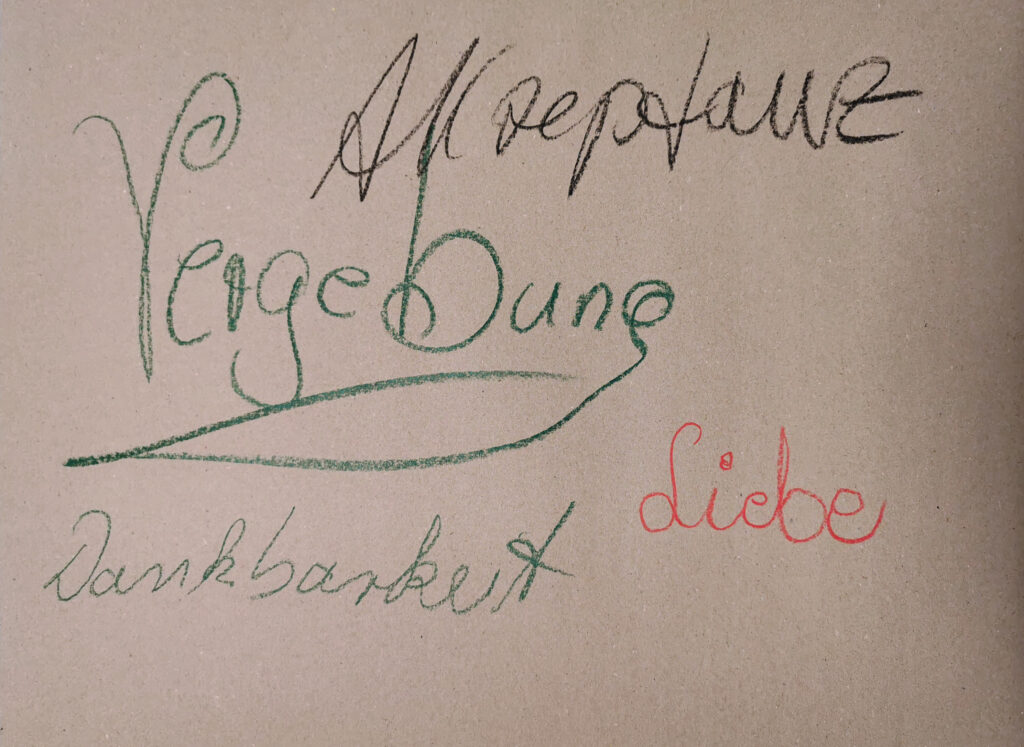 Akzeptanz
Vergebung
Liebe
Dankbarkeit